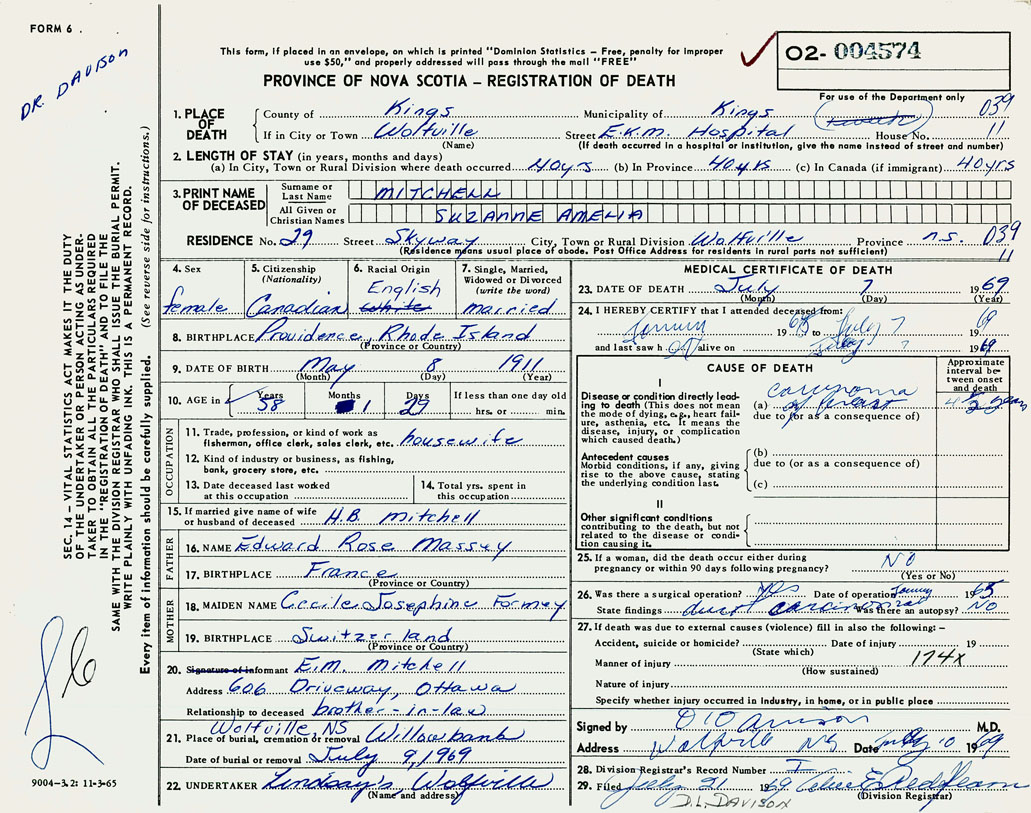 FORM 6 .
DR. DAVISON
This form, if placed in an envelope, on which is printed "Dominion Statistics – Free, penalty for improper
use $50," and properly addressed will pass through the mail "FREE"
PROVINCE OF NOVA SCOTIA – REGISTRATION OF DEATH
02- 004574
For use of the Department only
039
11
1. PLACE OF DEATH
County of Kings Municipality of Kings
If in City or Town Wolfville Street E.K.M. Hospital House No.
(Name) (If death occurred in a hospital or institution, give the name instead of street and number)
2. LENGTH OF STAY (in years, months and days)
(a) In City, Town or Rural Division where death occurred 40 yrs (b) In Province 40 yrs (c) In Canada (if immigrant) 40 yrs
3. PRINT NAME OF DECEASED
Surname or Last Name MITCHELL
All Given or Christian Names SUZANNE AMELIA
RESIDENCE No. 29 Street Skyway City, Town or Rural Division Wolfville Province n.s. 039
(Residence means usual place of abode. Post Office Address for residents in rural parts not sufficient) 11
4. Sex
female
5. Citizenship
(Nationality)
Canadian
6. Racial Origin
English
White
7. Single, Married,
Widowed or Divorced
(write the word)
married
8. BIRTHPLACE Providence, Rhode Island
(Province or Country)
9. DATE OF BIRTH May 8 1911
(Month) (Day) (Year)
10. AGE in Years Months Days If less than one day old
58 1 29 hrs. or min.
OCCUPATION
11. Trade, profession, or kind of work as
fisherman, office clerk, sales clerk, etc. housewife
12. Kind of industry or business, as fishing,
bank, grocery store, etc.
13. Date deceased last worked
at this occupation
14. Total yrs. spent in
this occupation
15. If married give name of wife
or husband of deceased H.B. Mitchell
FATHER
16. NAME Edward Rose Massey
17. BIRTHPLACE France
(Province or Country)
MOTHER
18. MAIDEN NAME Cecile Josephine Formey
19. BIRTHPLACE Switzerland
(Province or Country)
20. Signature of informant E.M. Mitchell
Address 606 Driveway, Ottawa
Relationship to deceased brother-in-law
Wolfville NS
21. Place of burial, cremation or removal Willowbank
Date of burial or removal July 9, 1969
22. UNDERTAKER Lindsay's Wolfville
(Name and address)
MEDICAL CERTIFICATE OF DEATH
23. DATE OF DEATH July 7 1969
(Month) (Day) (Year)
24. I HEREBY CERTIFY that I attended deceased from:
19 to July 7 1969
and last saw h alive on July 7 1969
CAUSE OF DEATH
Approximate
interval be-
tween onset
and death
I
Disease or condition directly lead-
ing to death (This does not
mean the mode of dying, e.g., heart fail-
ure, asthenia, etc. It means the
disease, injury, or complication
which caused death.)
carcinoma
(a) of breast
due to (or as a consequence of)
Antecedent causes
Morbid conditions, if any, giving
rise to the above cause, stating
the underlying condition last.
(b)
due to (or as a consequence of)
(c)
II
Other significant conditions
contributing to the death, but not
related to the disease or condi-
tion causing it.
25. If a woman, did the death occur either during
pregnancy or within 90 days following pregnancy? NO
(Yes or No)
26. Was there a surgical operation? yes Date of operation 1965
State findings duct carcinoma Was there an autopsy? NO
27. If death was due to external causes (violence) fill in also the following: –
Accident, suicide or homicide? Date of injury 19
(State which)
Manner of injury 174X
(How sustained)
Nature of injury
Specify whether injury occurred in Industry, in home, or in public place
Signed by M.D.
Address Wolfville NS Date July 10 1969
28. Division Registrar's Record Number
29. Filed July 21 1969
(Division Registrar)
D.L. DAVISON
SEC. 14 – VITAL STATISTICS ACT MAKES IT THE DUTY
OF THE UNDERTAKER OR PERSON ACTING AS UNDER-
TAKER TO OBTAIN ALL THE PARTICULARS REQUIRED
IN THE "REGISTRATION OF DEATH" AND TO FILE THE
SAME WITH THE DIVISION REGISTRAR WHO SHALL ISSUE THE BURIAL PERMIT.
WRITE PLAINLY WITH UNFADING INK. THIS IS A PERMANENT RECORD.
Every item of information should be carefully supplied. (See reverse side for instructions.)
9004–3.2: 11-3-65